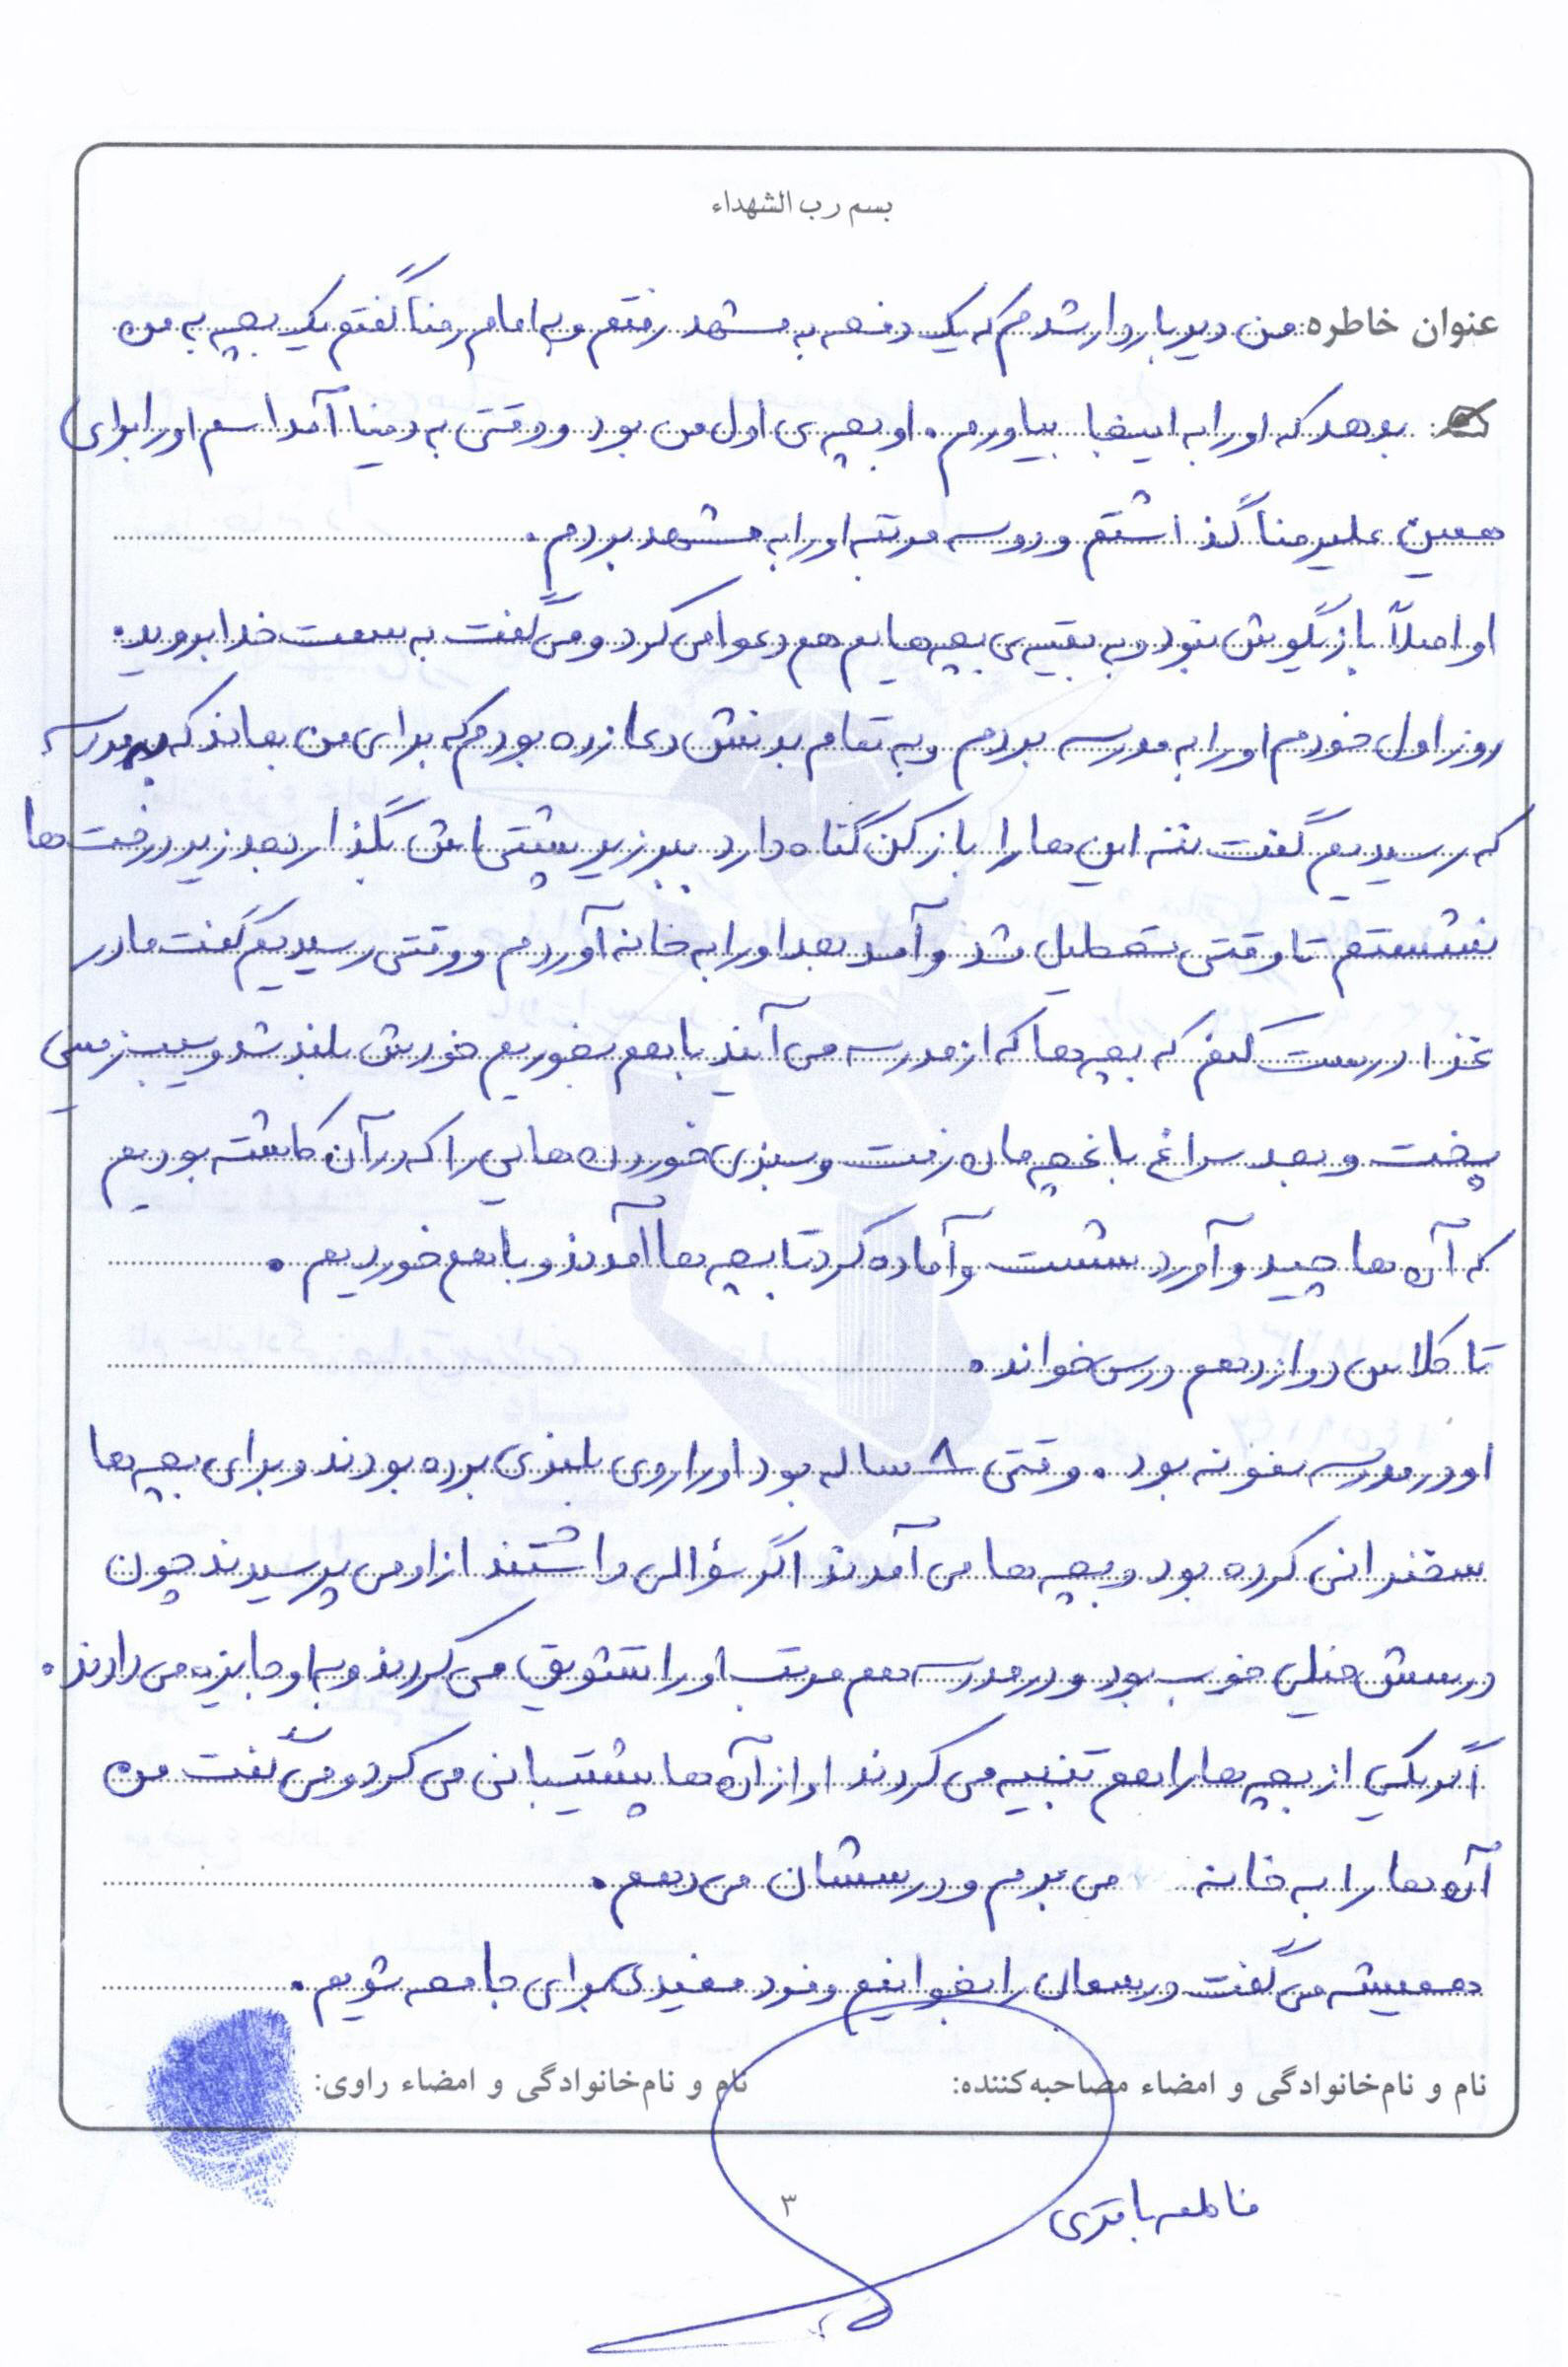 بسم رب الشهداء
عنوان خاطره: من دیر باردار شدم که یک دفعه به مشهد رفتم و به امام رضا گفتم یک بچه به من
بدهد که او را به اینجا بیاورم. او بچه‌ی اول من بود و وقتی به دنیا آمد اسم او را برای
همین علیرضا گذاشتم و دو سه مرتبه او را به مشهد بردم.
او اصلاً بازیگوش نبود و به بقیه‌ی بچه‌هایم هم دعوا می‌کرد و می‌گفت به سمت خدا بروید.
روز اول خودم او را به مدرسه بردم و به تمام بدنش دعا زده بودم که برای من بماند که به مدرسه
که رسیدیم گفت ننه این‌ها را باز کن گناه دارد ببر زیر پشتی‌اش بگذار بعد زیر درخت‌ها
نشستم تا وقتی تعطیل شد و آمد بعد او را به خانه آوردم و وقتی رسیدیم گفت مادر
غذا درست کنم که بچه‌ها که از مدرسه می‌آیند با هم بخوریم خودش بلند شد و سیب زمینی
پخت و بعد سراغ باغچه‌مان رفت و سبزی خوردن‌هایی را که در آن کاشته بودیم
که آن‌ها چید و آورد شست و آماده کرد تا بچه‌ها آمدند و با هم خوردیم.
تا کلاس دوازدهم درس خواند.
او در مدرسه نمونه بود. وقتی ۸ ساله بود او را روی بلندی برده بودند و برای بچه‌ها
سخنرانی کرده بود و بچه‌ها می‌آمدند اگر سؤالی داشتند از او می‌پرسیدند چون
درسش خیلی خوب بود و در مدرسه هم مرتب او را تشویق می‌کردند و به او جایزه می‌دادند.
اگر یکی از بچه‌ها را هم تنبیه می‌کردند او از آن‌ها پشتیبانی می‌کرد و می‌گفت من
آن‌ها را به خانه می‌برم و درسشان می‌دهم.
همیشه می‌گفت درسمان را بخوانیم و فرد مفیدی برای جامعه شویم.
نام و نام‌خانوادگی و امضاء مصاحبه‌کننده: نام و نام‌خانوادگی و امضاء راوی:
فاطمه باقری
۳